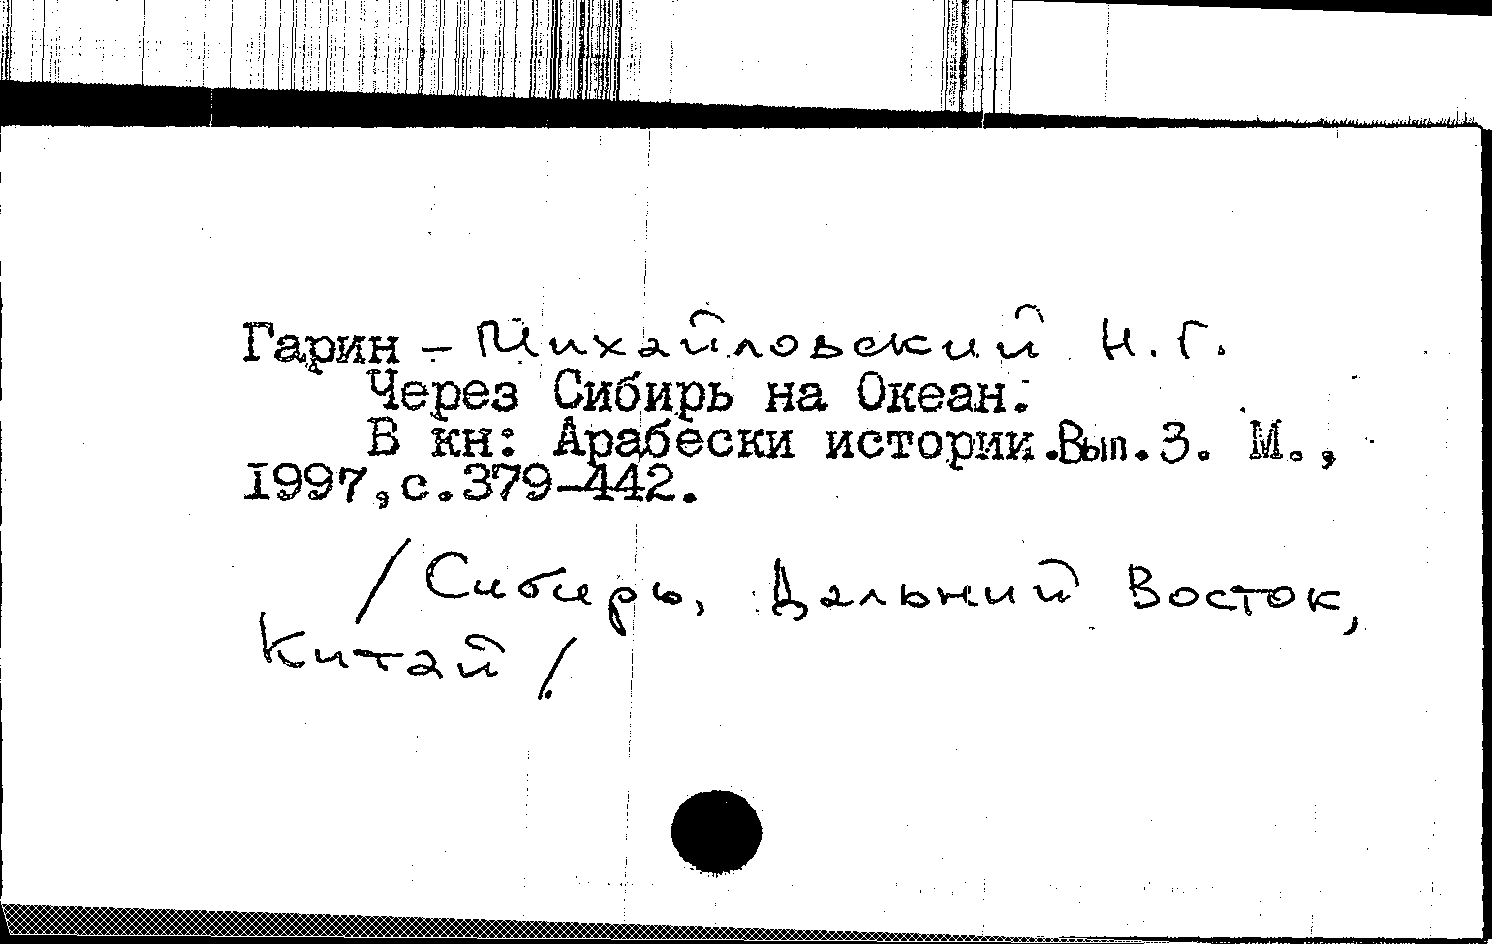 Гарин – Михайловский Н.Г.
Через Сибирь на Океан.
В кн: Арабески истории.Вып.3. М.,
1997,с.379-442.
/Сибирь, Дальний Восток,
Китай/.